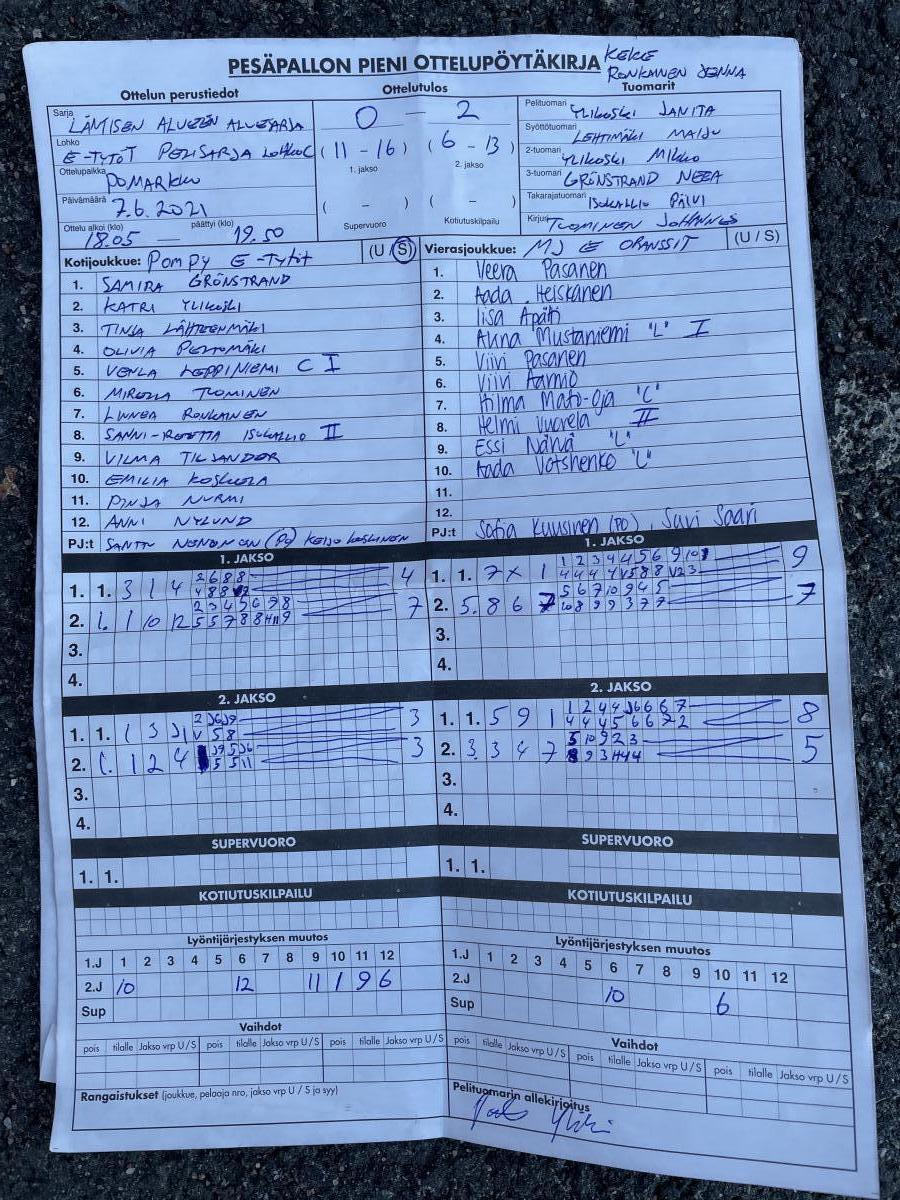 PESÄPALLON PIENI OTTELUPÖYTÄKIRJA
KEKE
RONKANEN JENNA
Ottelun perustiedot
Ottelutulos
Tuomarit
Sarja LÄNTISEN ALUEEN ALUESARJA
0 — 2
Pelituomari YLIKOSKI JANITA
Lohko E-TYTÖT PELISARJA LOHKO C
(11 - 16) (6 - 13)
1. jakso 2. jakso
Syöttötuomari LEHTIMÄKI MAIJU
2-tuomari YLIKOSKI MIKKO
Ottelupaikka POMARKKU
3-tuomari GRÖNSTRAND NEEA
Päivämäärä 7.6.2021
( - ) ( - )
Supervuoro Kotiutuskilpailu
Takarajatuomari ISOKALLIO PÄIVI
Ottelu alkoi (klo) 18.05 — päättyi (klo) 19.50
Kirjuri TUOMINEN JOHANNES
Kotijoukkue: POMPY E-TYTÖT (U / S)
Vierasjoukkue: MJ E ORANSSIT (U / S)
1. SAMIRA GRÖNSTRAND
2. KATRI YLIKOSKI
3. TINJA LÄHTEENMÄKI
4. OLIVIA PELTOMÄKI
5. VENLA LEPPINIEMI C I
6. MIRELLA TUOMINEN
7. LINNEA RONKAINEN
8. SANNI-REETTA ISOKALLIO II
9. VILMA TILSANDOR
10. EMILIA KOSKELA
11. PINJA NURMI
12. ANNI NYLUND
PJ:t SANTTU (PJ) KEIJO KOSKINEN
1. Veera Pasanen
2. Aada Heiskanen
3. Iisa Apäjti
4. Anna Mustaniemi "L" I
5. Viivi Pasanen
6. Viivi Aarnio
7. Hilma Mato-oja "C"
8. Helmi Vuorela II
9. Essi Närvä "L"
10. Aada Votshenko "L"
11.
12.
PJ:t Sofia Kuusinen (PJ), Suvi Saari
1. JAKSO
1. 1. 3 1 4 2 6 8 8 4
2. 1. 1 10 12 2 3 4 5 6 7 8 7
5 5 7 8 8 H 11 9
3.
4.
1. JAKSO
1. 1. 7 X 1 1 2 3 4 4 5 6 9 10 9
2. 5. 8 6 7 5 6 7 10 9 4 5 7
10 8 9 9 3 7 7
3.
4.
2. JAKSO
1. 1. 1 3 3
V 5 8
2. 1. 1 2 4 3
5 5 11
3.
4.
2. JAKSO
1. 1. 5 9 1 1 2 4 4 6 6 7 8
4 4 4 5 6 6 7 2
2. 3. 3 4 7 5 10 9 2 3 5
8 9 3 H 4 4
3.
4.
SUPERVUORO
1. 1.
SUPERVUORO
1. 1.
KOTIUTUSKILPAILU
KOTIUTUSKILPAILU
Lyöntijärjestyksen muutos
1.J 1 2 3 4 5 6 7 8 9 10 11 12
2.J 10 12 11 1 9 6
Sup
Lyöntijärjestyksen muutos
1.J 1 2 3 4 5 6 7 8 9 10 11 12
2.J 10 6
Sup
Vaihdot
pois tilalle Jakso vrp U / S pois tilalle Jakso vrp U / S
Vaihdot
pois tilalle Jakso vrp U / S pois tilalle Jakso vrp U / S pois tilalle Jakso vrp U / S
Rangaistukset (joukkue, pelaaja nro, jakso vrp U / S ja syy)
Pelituomarin allekirjoitus